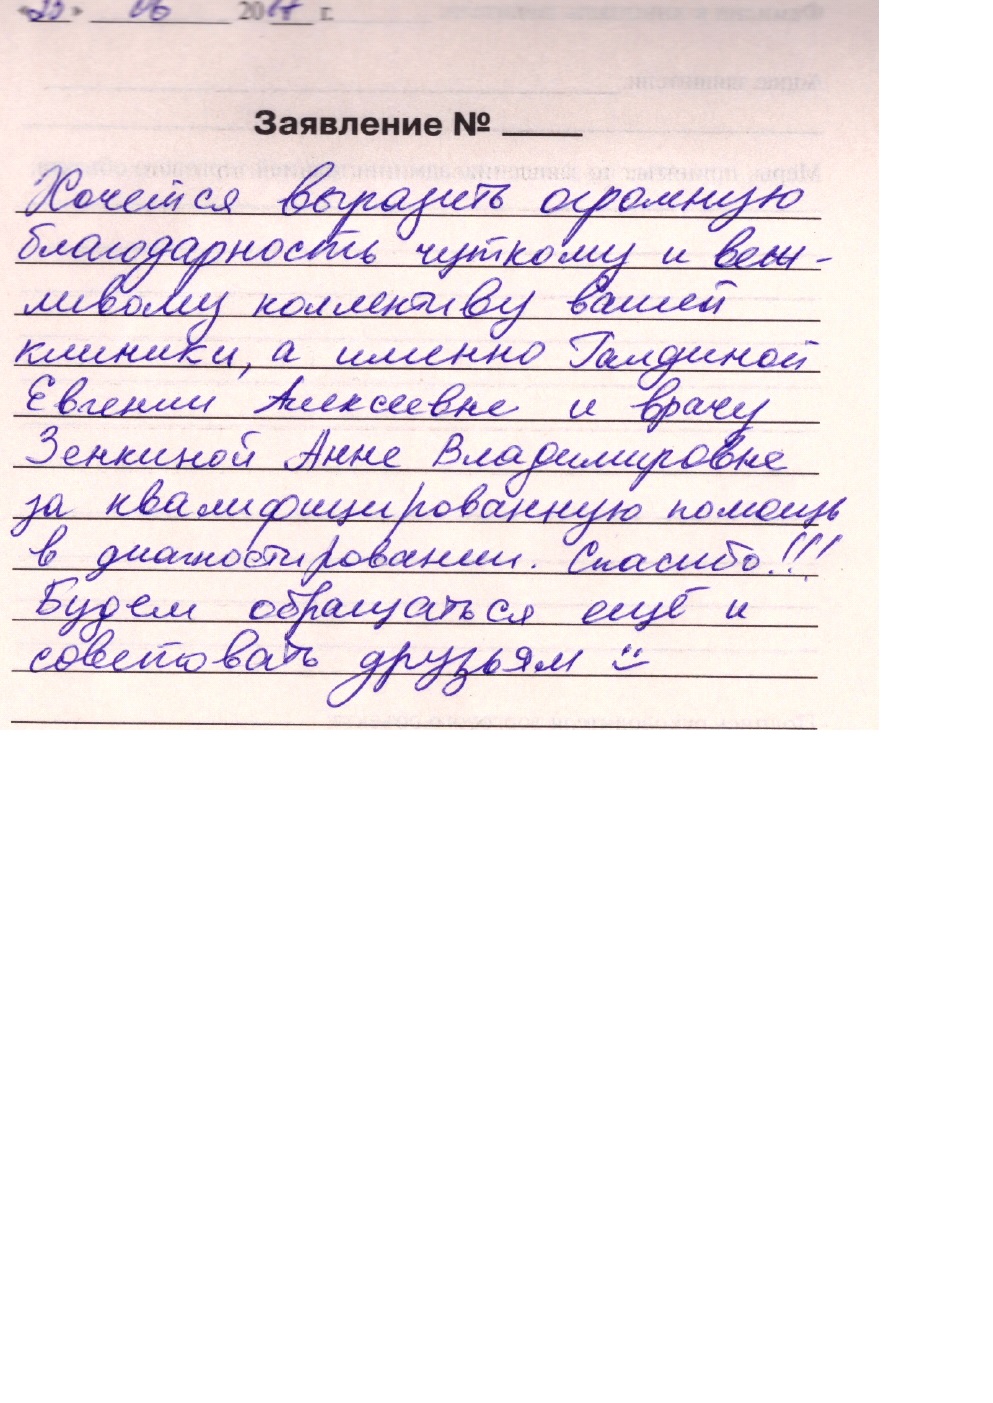 « » 06 20 г.
Заявление № ____
Хочется выразить огромную
благодарность чуткому и веж-
ливому коллективу вашей
клиники, а именно Галдиной
Евгении Алексеевне и врачу
Зенкиной Анне Владимировне
за квалифицированную помощь
в диагностировании. Спасибо!!!
Будем обращаться ещё и
советовать друзьям